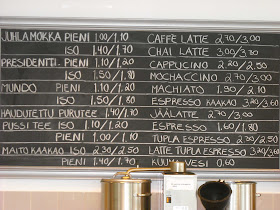 JUHLAMOKKA PIENI 1.00/1.10
ISO 1.40/1.70
PRESIDENTTI. PIENI 1.10/1.20
ISO 1.50/1.80
MUNDO PIENI 1.10/1.20
ISO 1.50/1.80
HAUDUTETTU PURUTEE 1.40/1.70
PUSSITEE ISO 1.10/1.20
PIENI 1.00/1.10
MAITO KAAKAO ISO 2.30/2.50
PIENI 1.40/1.70
CAFFÈ LATTE 2.70/3.00
CHAI LATTE 3.00/3.30
CAPPUCINO 2.20/2.50
MOCHACCINO 2.70/3.00
MACHIATO 1.90/2.10
ESPRESSO KAAKAO 3.20/3.60
JÄÄLATTE 2.70/3.00
ESPRESSO 1.60/1.80
TUPLA ESPRESSO 2.30/2.50
LATTE TUPLA ESPRESSO 3.20/3.60
KUUMA VESI 0.60